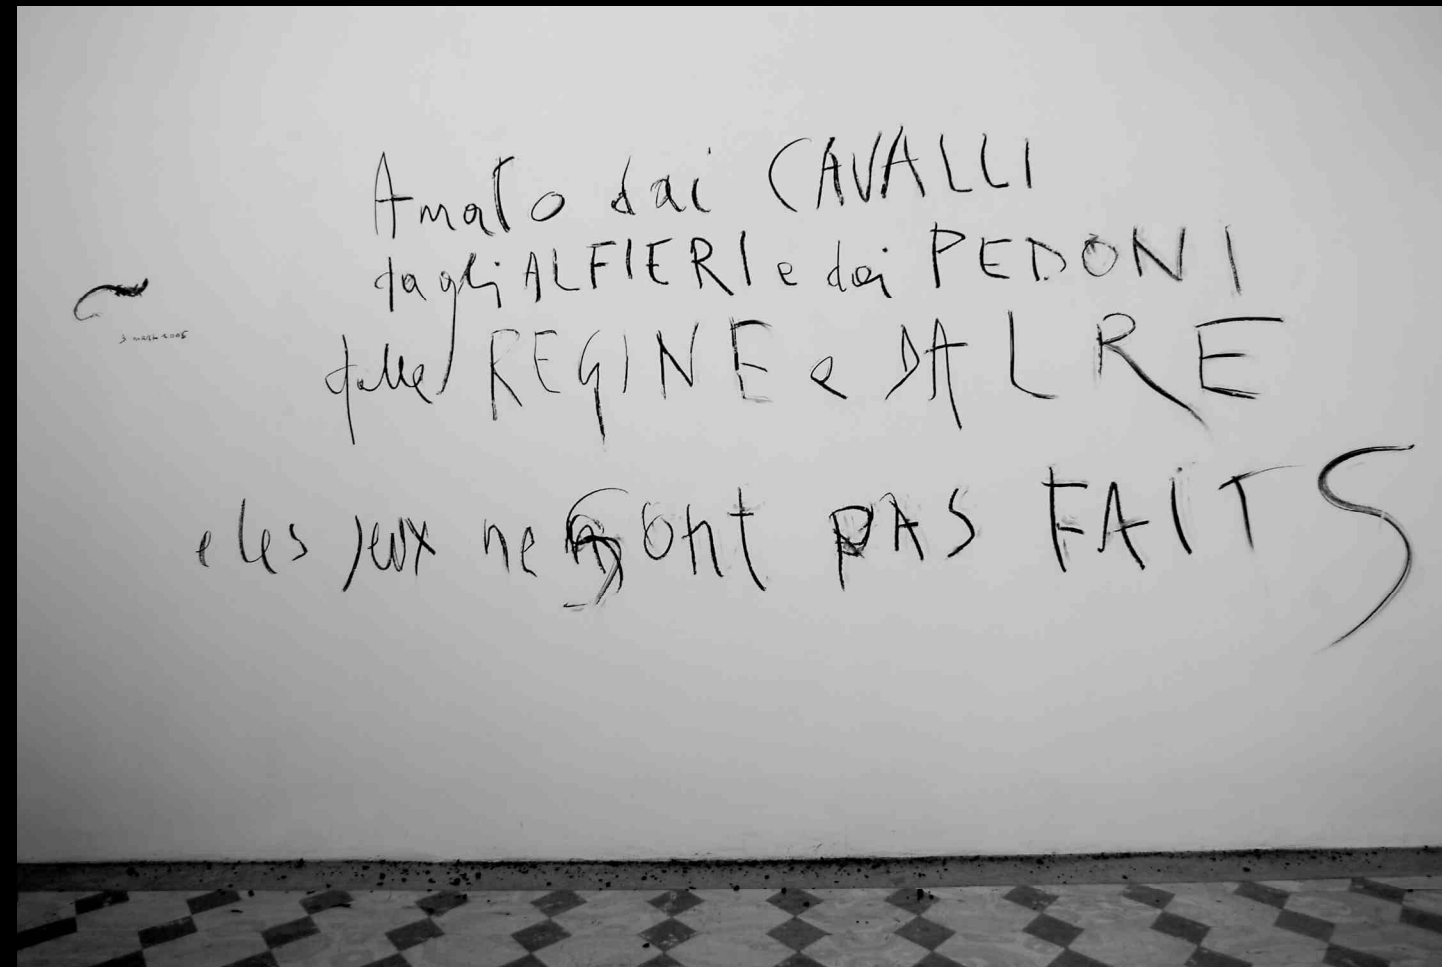 Amato dai CAVALLI
dagli ALFIERI e dai PEDONI
dalle REGINE e DAL RE
e les jeux ne sont pas FAITS